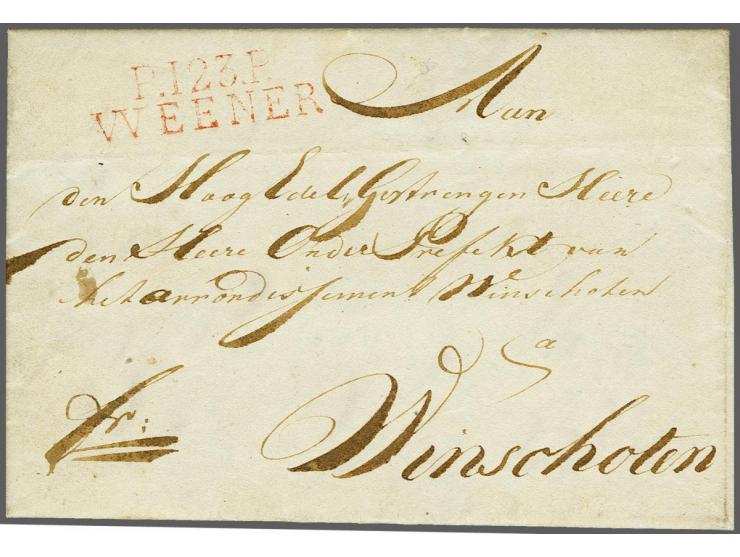 P.123.P.
WEENER
Aan
den Hoog Edel Gestrengen Heere
den Heere Onder Prefekt van
het arrondissement Winschoten
a
fr:
Winschoten